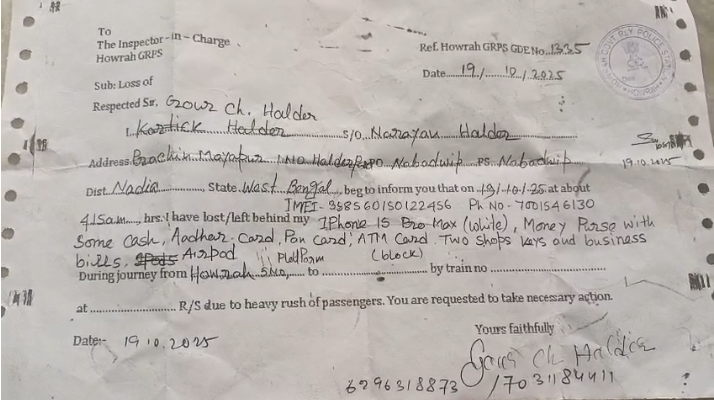 To
The Inspector - in – Charge
Howrah GRPS
Ref. Howrah GRPS GDE No. 1335
Date 19/10/2025
Sub: Loss of
Respected Sir, Gour Ch. Halder
I, Kartick Halder S/O Narayan Halder
Address Prachin Mayapur 1 NO Halder PO Nabadwip PS. Nabadwip
19.10.2025
Dist. Nadia, State West Bengal, beg to inform you that on 19/10/25 at about
IMEI- 358560150122456 Ph NO- 7001546130
4.15am hrs. I have lost/left behind my IPhone 15 Pro Max (White), Money Purse with
Some Cash, Aadhar Card, Pan Card, ATM Card Two Shops Keys and business
bills. Airpod Platform (block)
During journey from Howrah to by train no
at R/S due to heavy rush of passengers. You are requested to take necessary action.
Yours faithfully
Date:- 19.10.2025
Gour Ch Halder
6296318873 / 7031184411